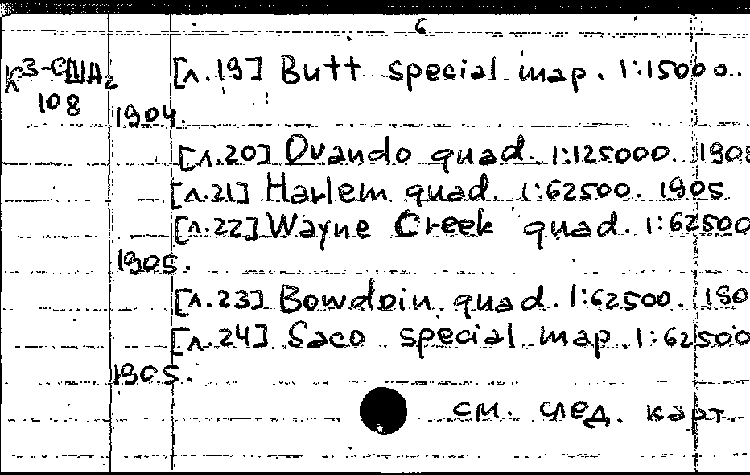 6
К3-США2 [л.19] Butt special map. 1:15000.
108
1904.
[л.20] Ovando quad. 1:125000. 190
[л.21] Harlem quad. 1:62500. 1905
[л.22] Wayne Creek quad. 1:62500
1905.
[л.23] Bowdoin quad. 1:62500. 190
[л.24] Saco special map. 1:62500
1905.
см. след. карт.